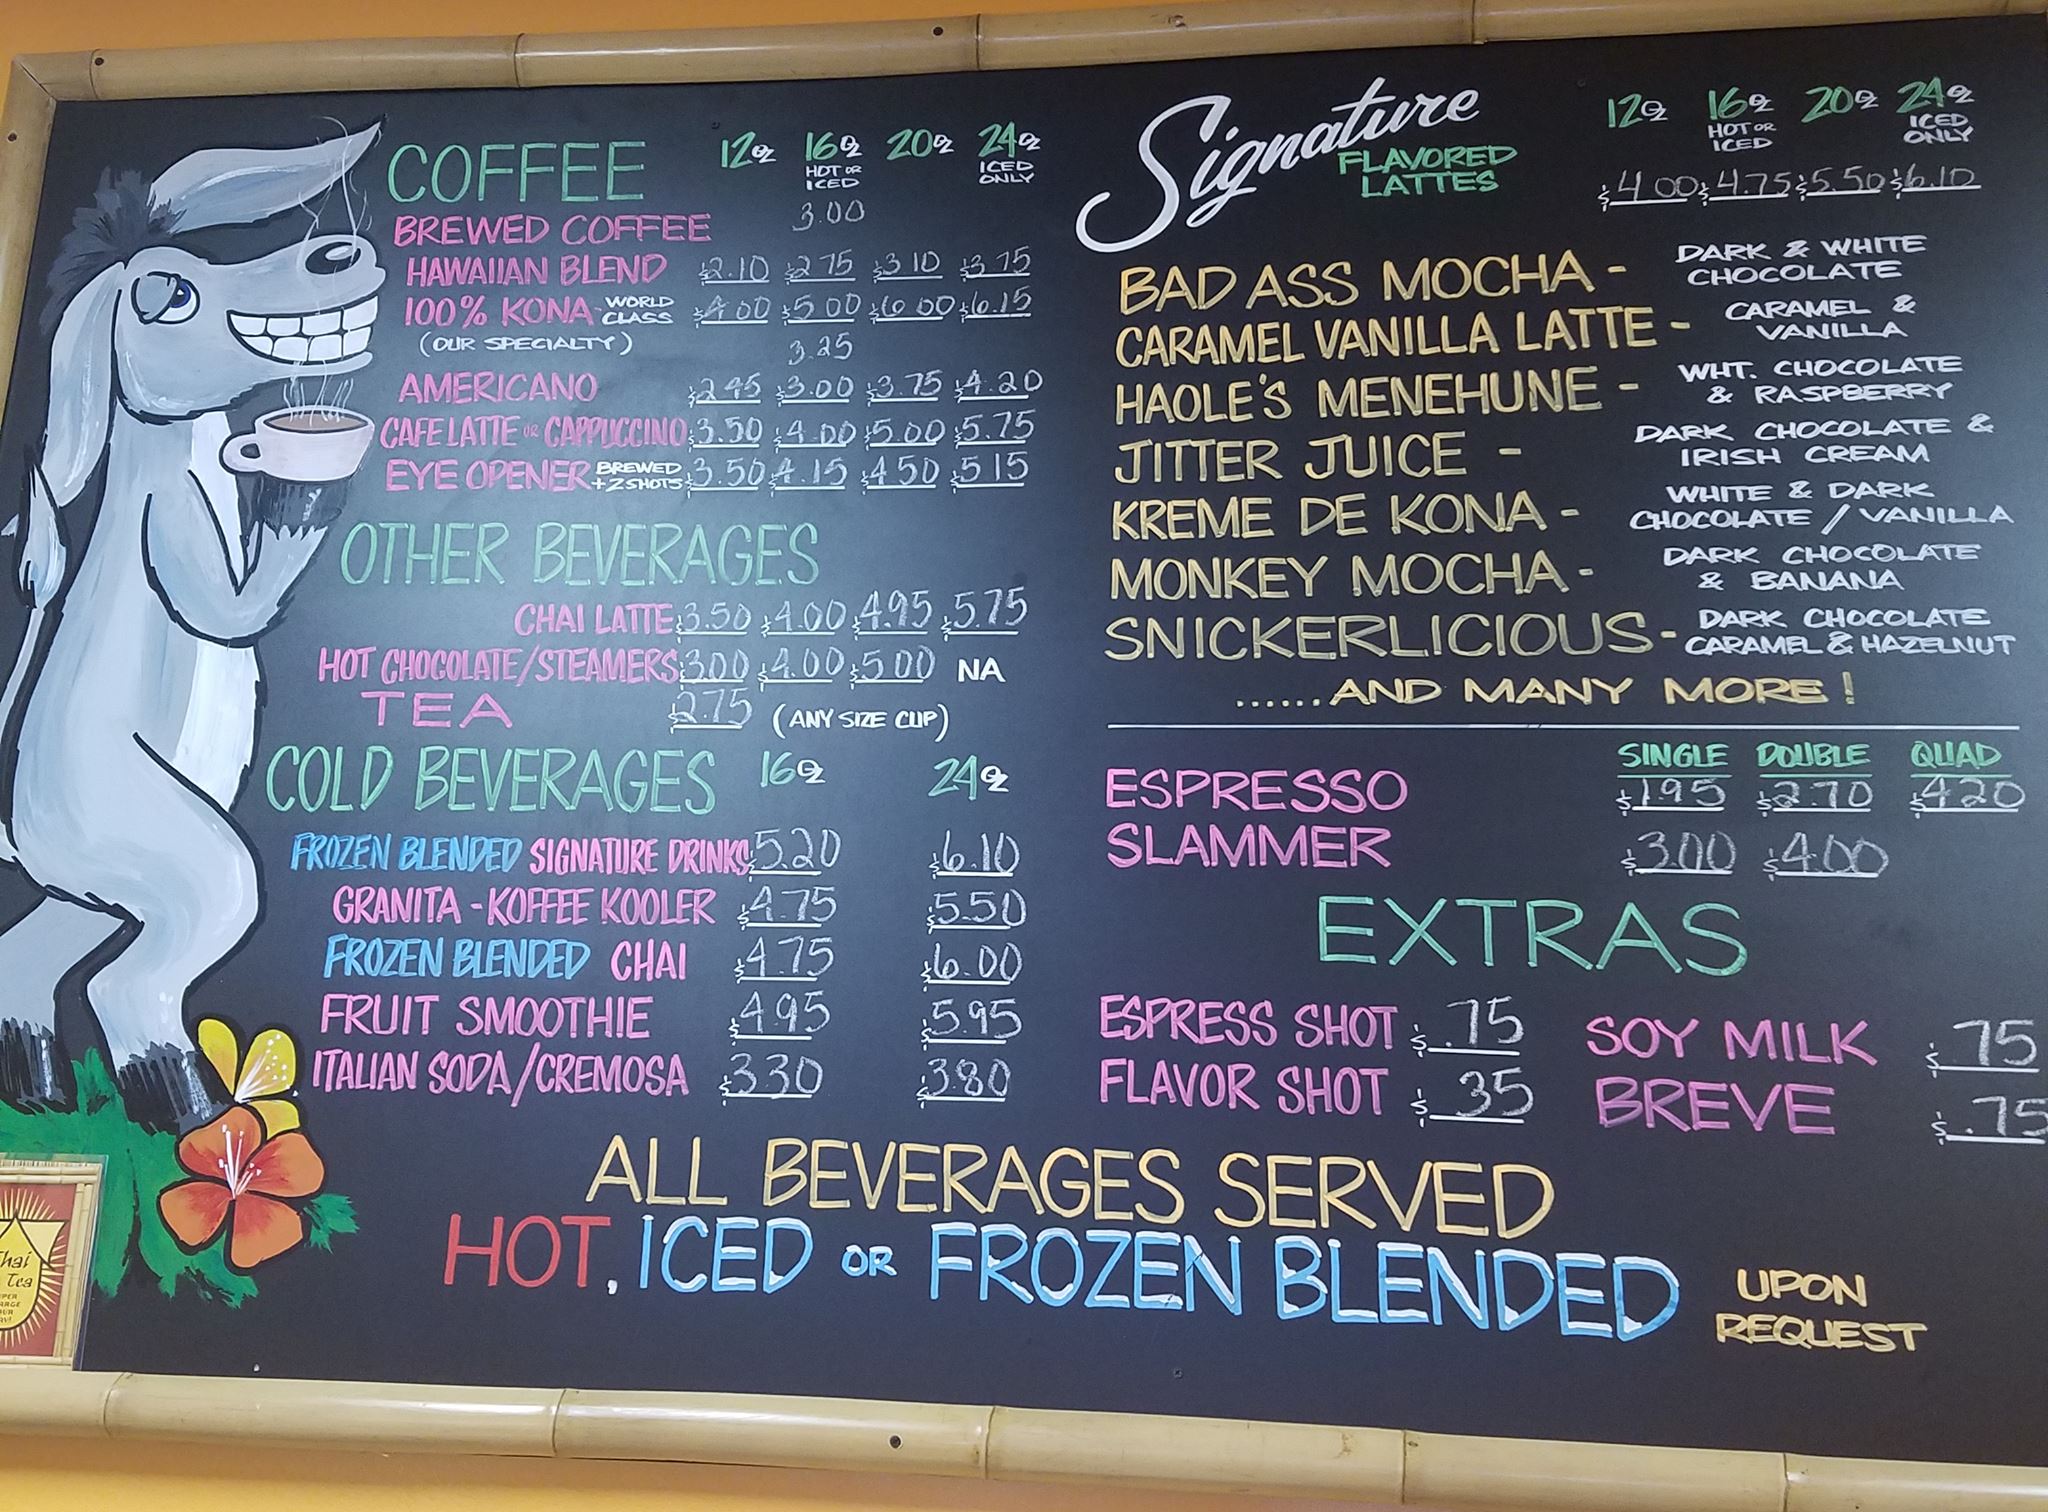 COFFEE 12oz 16oz HOT OR ICED 20oz 24oz ICED ONLY
BREWED COFFEE 3.00
HAWAIIAN BLEND $2.10 $2.75 $3.10 $3.75
100% KONA - WORLD CLASS $4.00 $5.00 $6.00 $6.15
(OUR SPECIALTY) 3.25
AMERICANO $2.45 $3.00 $3.75 $4.20
CAFE LATTE OR CAPPUCCINO $3.50 $4.00 $5.00 $5.75
EYE OPENER BREWED + 2 SHOTS $3.50 $4.15 $4.50 $5.15
OTHER BEVERAGES
CHAI LATTE $3.50 $4.00 $4.95 $5.75
HOT CHOCOLATE/STEAMERS $3.00 $4.00 $5.00 NA
TEA $2.75 (ANY SIZE CUP)
COLD BEVERAGES 16oz 24oz
FROZEN BLENDED SIGNATURE DRINKS $5.20 $6.10
GRANITA - KOFFEE KOOLER $4.75 $5.50
FROZEN BLENDED CHAI $4.75 $6.00
FRUIT SMOOTHIE $4.95 $5.95
ITALIAN SODA/CREMOSA $3.30 $3.80
Signature FLAVORED LATTES 12oz 16oz HOT OR ICED 20oz 24oz ICED ONLY
$4.00 $4.75 $5.50 $6.10
BAD ASS MOCHA - DARK & WHITE CHOCOLATE
CARAMEL VANILLA LATTE - CARAMEL & VANILLA
HAOLE'S MENEHUNE - WHT. CHOCOLATE & RASPBERRY
JITTER JUICE - DARK CHOCOLATE & IRISH CREAM
KREME DE KONA - WHITE & DARK CHOCOLATE / VANILLA
MONKEY MOCHA - DARK CHOCOLATE & BANANA
SNICKERLICIOUS - DARK CHOCOLATE CARAMEL & HAZELNUT
......AND MANY MORE!
SINGLE DOUBLE QUAD
ESPRESSO $1.95 $2.70 $4.20
SLAMMER $3.00 $4.00
EXTRAS
ESPRESS SHOT $.75 SOY MILK $.75
FLAVOR SHOT $.35 BREVE $.75
ALL BEVERAGES SERVED
HOT, ICED OR FROZEN BLENDED UPON REQUEST
Thai
Tea